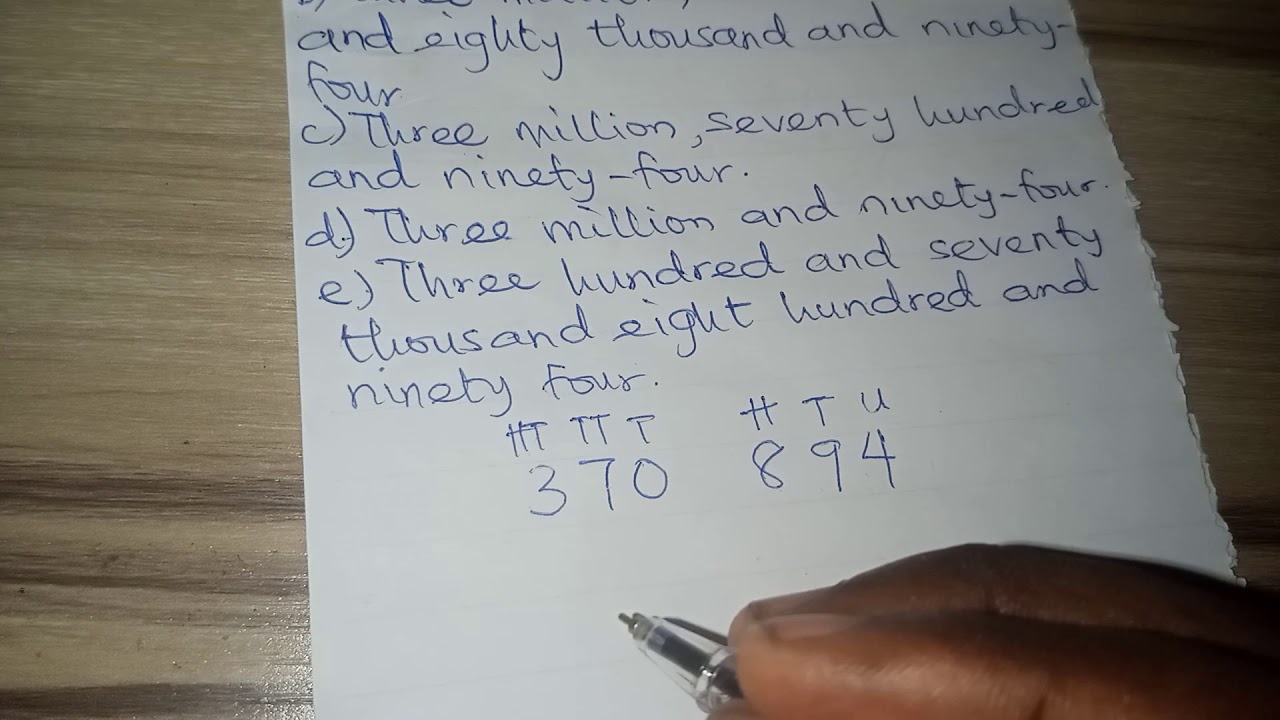 and eighty thousand and ninety-
four
c) Three million, seventy hundred
and ninety-four.
d) Three million and ninety-four.
e) Three hundred and seventy
thousand eight hundred and
ninety four.
HT TT T H T U
370 894